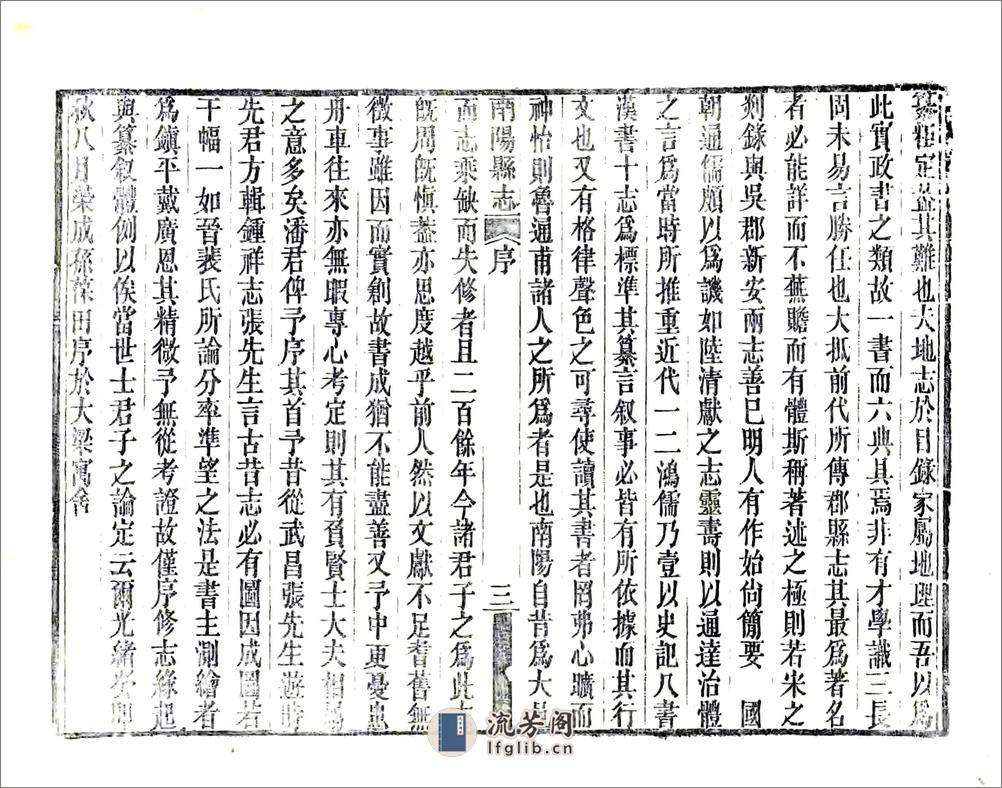 纂粗定蓋其難也夫地志於目錄家屬地理而吾以爲
此實政書之類故一書而六典具焉非有才學識三長
固未易言勝任也大抵前代所傳郡縣志其最爲著名
者必能詳而不蕪贍而有體斯稱著述之極則若宋之
剡錄與吳郡新安兩志善已明人有作始尙簡要 國
朝通儒頗以爲譏如陸清獻之志靈壽則以通達治體
之言爲當時所推重近代一二鴻儒乃壹以史記八書
漢書十志爲標準其纂言叙事必皆有所依據而其行
文也又有格律聲色之可尋使讀其書者罔弗心曠而
神怡則魯通甫諸人之所爲者是也南陽自昔爲大
南陽縣志 序 三
而志乘缺而失修者且二百餘年今諸君子之爲此
旣周旣愼蓋亦思度越乎前人然以文獻不足耆舊無
徵事雖因而實創故書成猶不能盡善又予中更憂患
舟車往來亦無暇專心考定則其有負賢士大夫相
之意多矣潘君俾予序其首予昔從武昌張先生遊時
先君方輯鍾祥志張先生言古昔志必有圖因成圖若
干幅一如晉裴氏所論分率準望之法是書主測繪者
爲鎭平戴廣恩其精微予無從考證故僅序修志緣起
與纂叙體例以俟當世士君子之論定云爾光緒癸卯
秋八月榮成孫葆田序於大梁寓舍
流芳阁
lfglib.cn